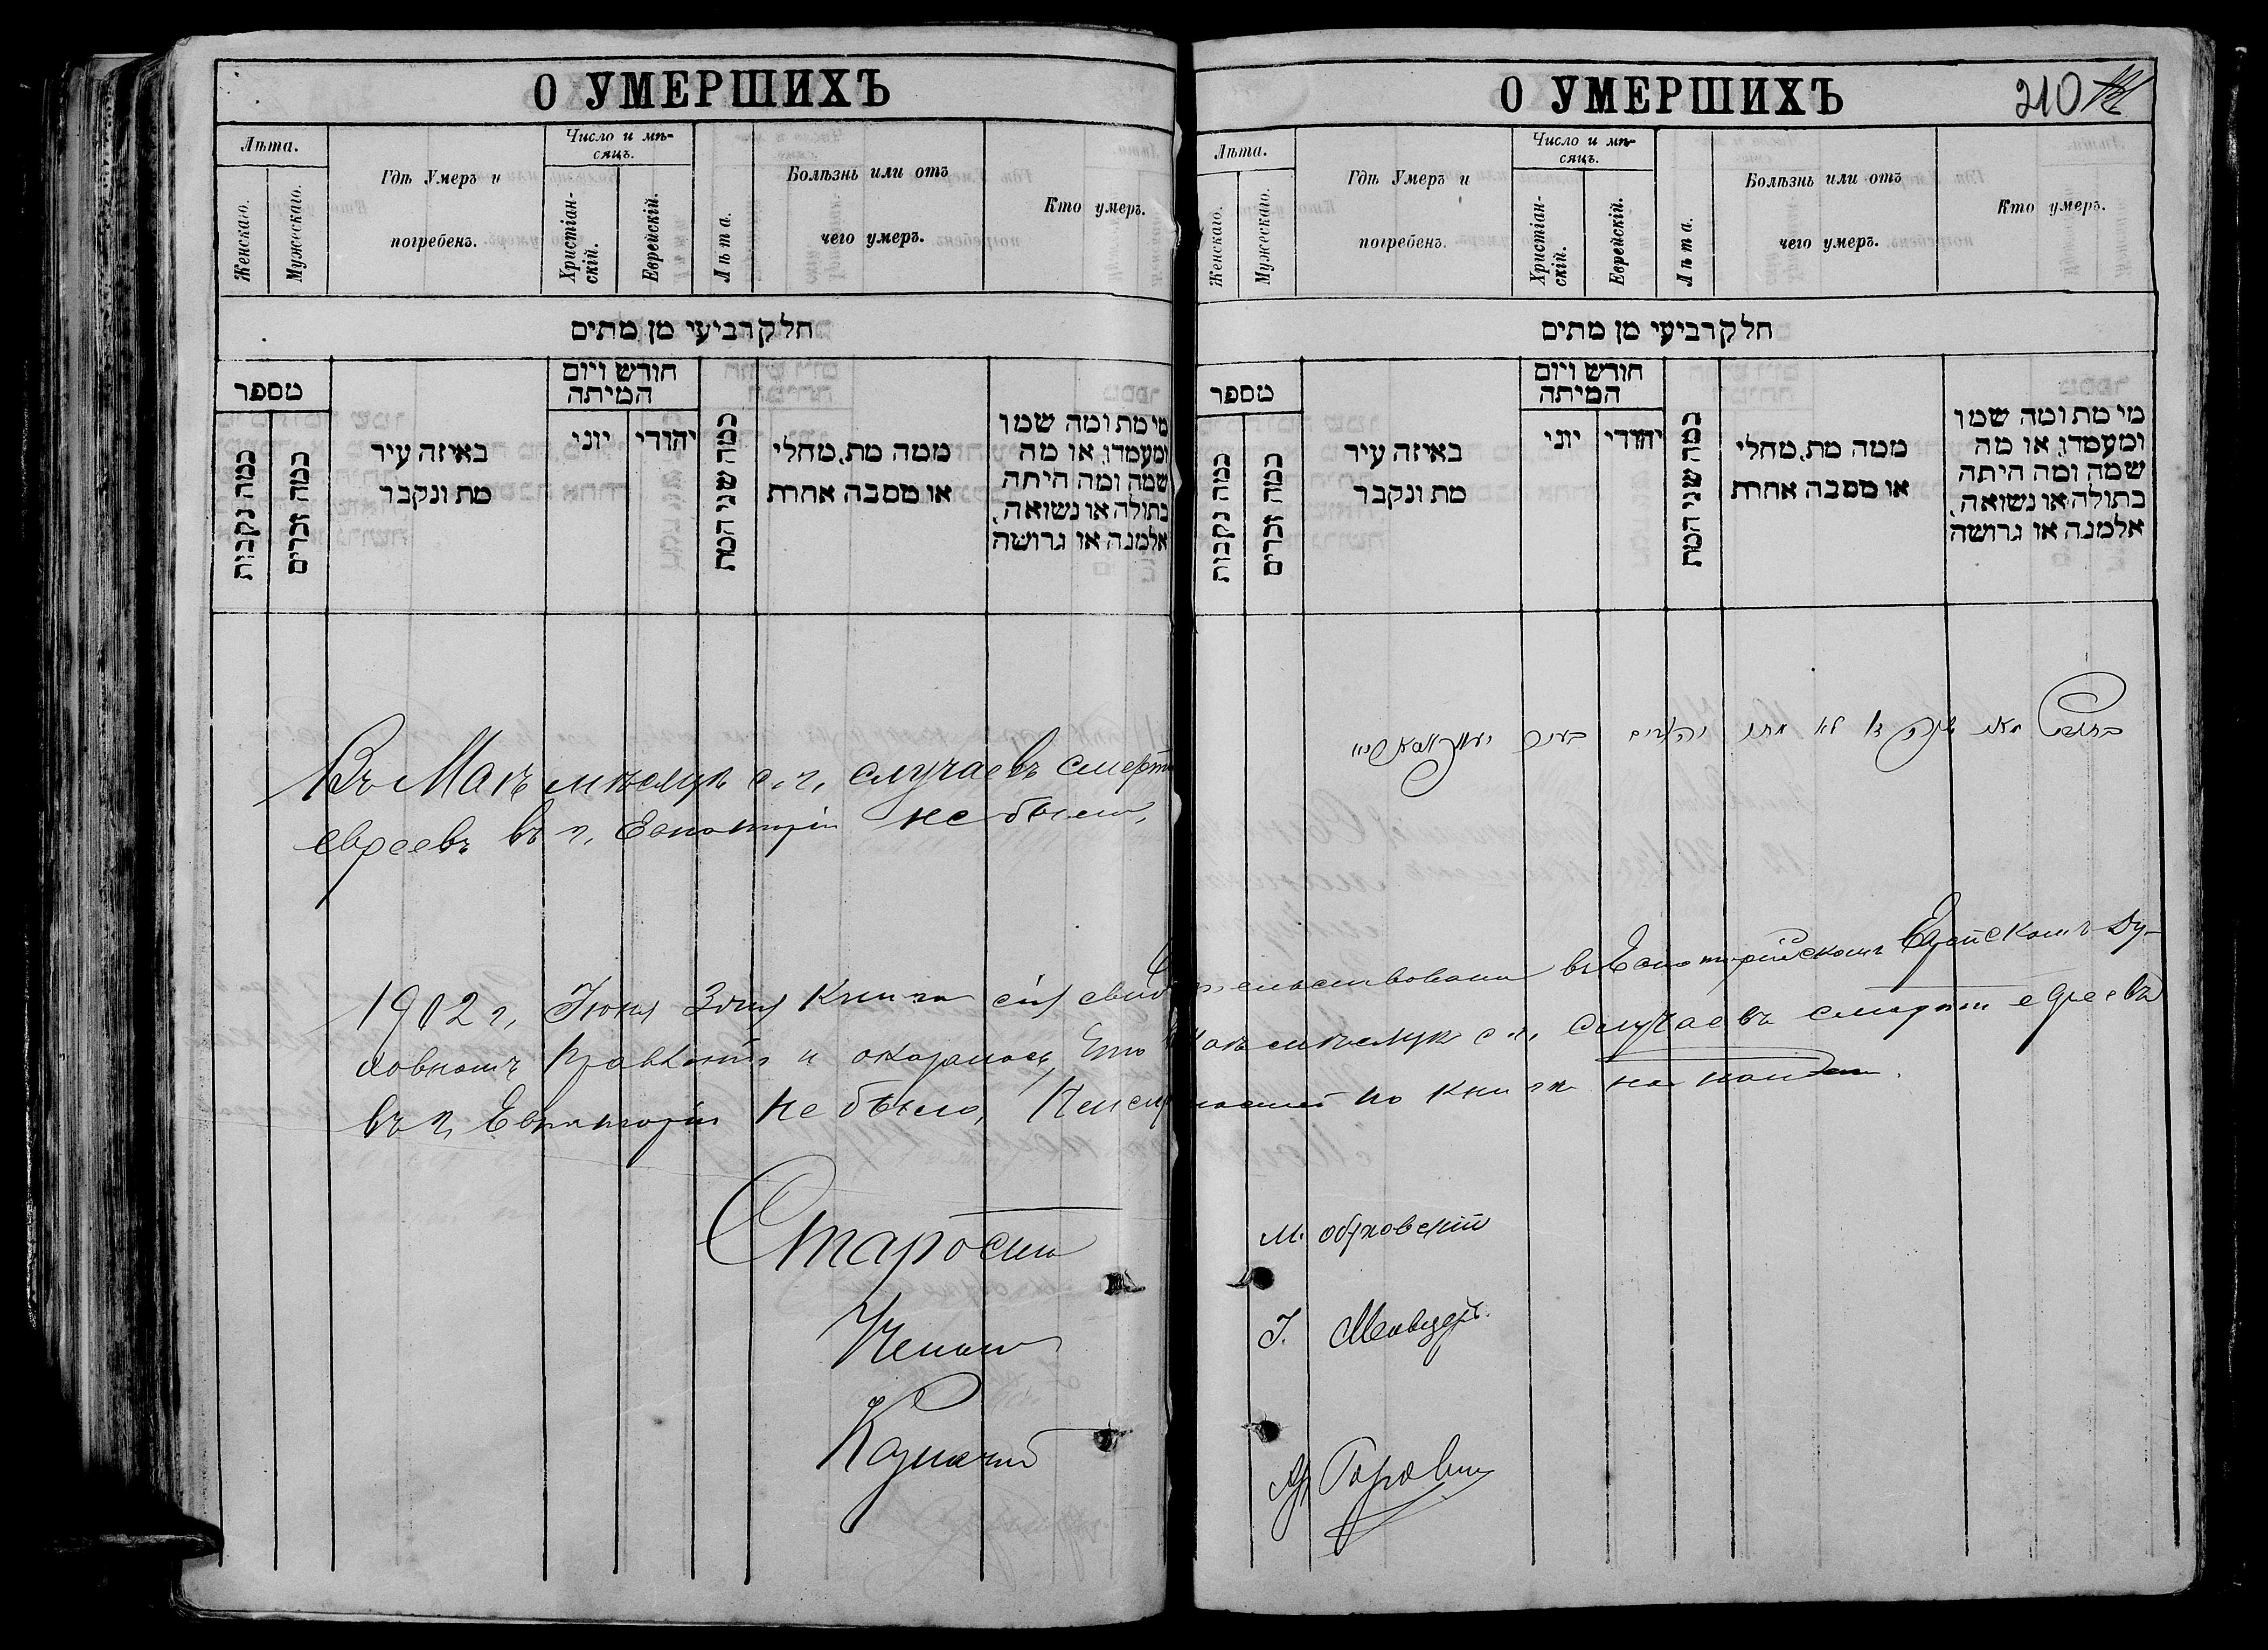 О УМЕРШИХЪ
Лѣта.
Женскаго.
Мужескаго.
Гдѣ Умеръ и
погребенъ.
Число и мѣ-
сяцъ.
Христіан-
скій.
Еврейскій.
Лѣта.
Болѣзнь или отъ
чего умеръ.
Кто умеръ.
חלק רביעי מן מתים
מספר
כמה נקבות
כמה זכרים
באיזה עיר
מת ונקבר
חודש ויום
המיתה
יוני
יהודי
כמה שני המת
ממה מת, מחלי
או מסבה אחרת
מי מת ומה שמו
ומעמדו, או מה
שמה ומה היתה
בתולה או נשואה,
אלמנה או גרושה
Въ Маѣ мѣсяцѣ с. г. случаевъ смерти
евреевъ въ г. Евпаторіи не было.
О УМЕРШИХЪ
210
Лѣта.
Женскаго.
Мужескаго.
Гдѣ Умеръ и
погребенъ.
Число и мѣ-
сяцъ.
Христіан-
скій.
Еврейскій.
Лѣта.
Болѣзнь или отъ
чего умеръ.
Кто умеръ.
חלק רביעי מן מתים
מספר
כמה נקבות
כמה זכרים
באיזה עיר
מת ונקבר
חודש ויום
המיתה
יוני
יהודי
כמה שני המת
ממה מת, מחלי
או מסבה אחרת
מי מת ומה שמו
ומעמדו, או מה
שמה ומה היתה
בתולה או נשואה,
אלמנה או גרושה
בחודש מאי לא מתו יהודים בעיר
1902 г. Іюня 3 дня книга сія свидѣтельствована въ Евпаторійскомъ Еврейскомъ Ду-
ховномъ Правленіи и оказалось, что въ Маѣ мѣсяцѣ с. г. случаевъ смерти евреевъ
въ г. Евпаторіи не было,
по книгѣ не
Староста
М. Обуховскій
Членъ
І.
Казначей